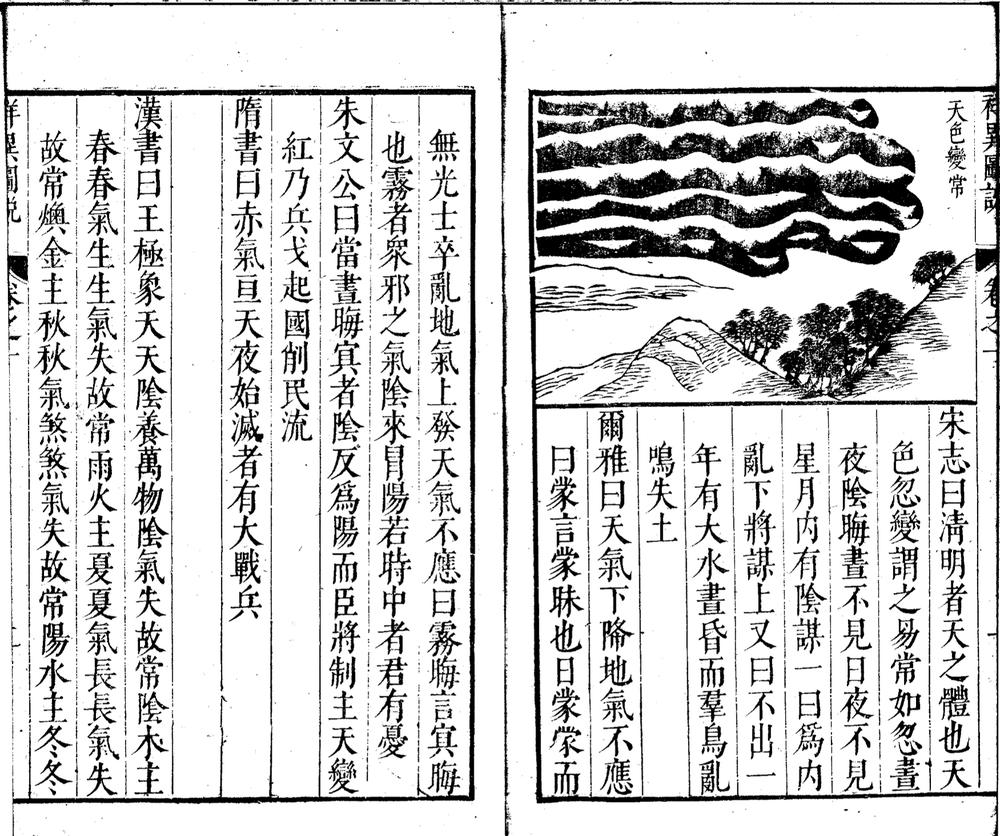 天色變常
宋志曰清明者天之體也天
色忽變謂之易常如忽晝
夜陰晦晝不見日夜不見
星月内有陰謀一曰爲内
亂下將謀上又曰不出一
年有大水晝昏而羣鳥亂
鳴失土
爾雅曰天氣下降地氣不應
曰䝉言䝉昧也日䝉䝉而
無光士卒亂地氣上發天氣不應曰霧晦言冥晦
也霧者衆邪之氣陰來冒陽若時中者君有憂
朱文公曰當晝晦冥者陰反爲陽而臣將制主天變
紅乃兵戈起國削民流
隋書曰赤氣亘天夜始滅者有大戰兵
漢書曰王極象天天陰養萬物陰氣失故常陰木主
春春氣生生氣失故常雨火主夏夏氣長長氣失
故常燠金主秋秋氣煞煞氣失故常陽水主冬冬
祥異圖說
卷之一